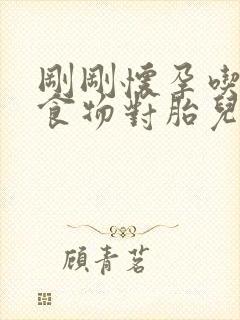 剛剛懷孕喫
食物對胎兒
顧青茗